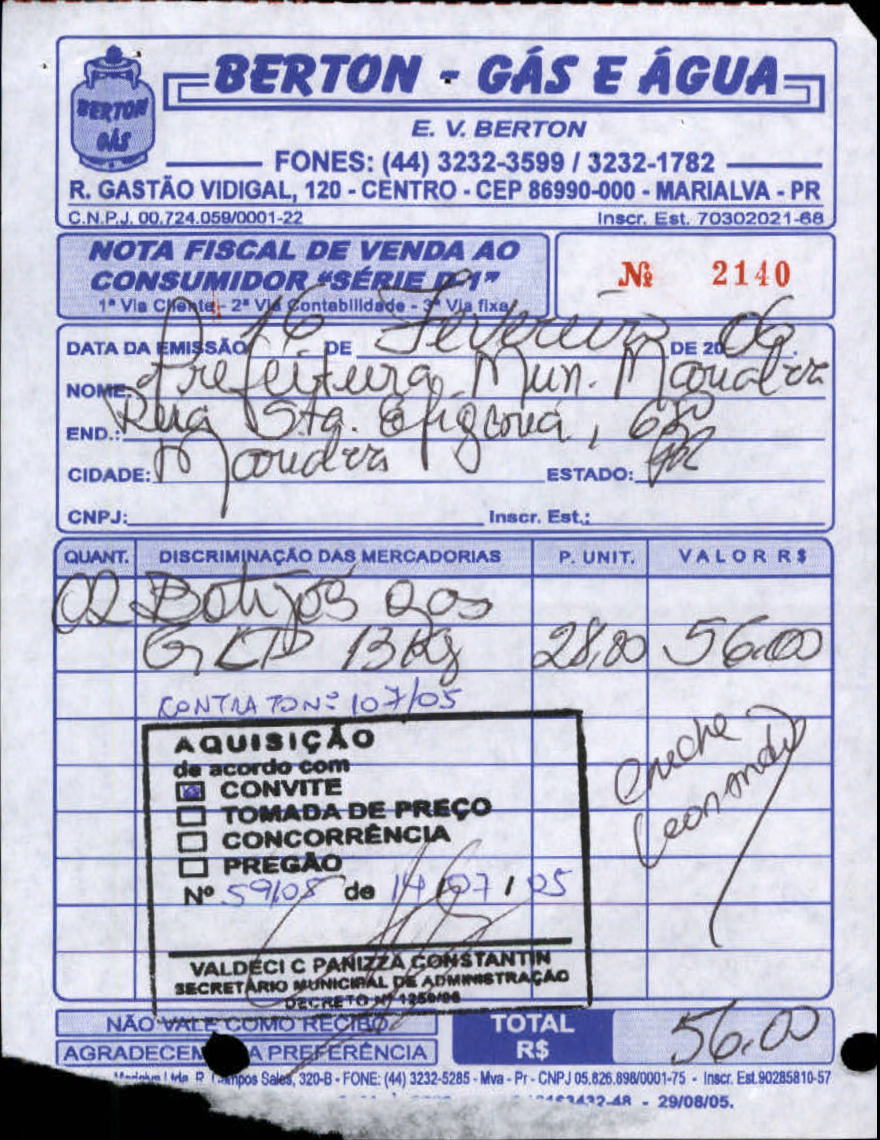 BERTON - GÁS E ÁGUA
BERTON
GÁS
E. V. BERTON
FONES: (44) 3232-3599 / 3232-1782
R. GASTÃO VIDIGAL, 120 - CENTRO - CEP 86990-000 - MARIALVA - PR
C.N.P.J. 00.724.059/0001-22 Inscr. Est. 70302021-68
NOTA FISCAL DE VENDA AO
CONSUMIDOR "SÉRIE D-1"
1ª Via Cliente - 2ª Via Contabilidade - 3ª Via fixa
Nº 2140
DATA DA EMISSÃO 16 DE Fevereiro DE 2006.
NOME: Prefeitura Mun. Marialva
END.: Rua Sta. Efigenia, 680
CIDADE: Marialva ESTADO: PR
CNPJ: Inscr. Est.:
QUANT. DISCRIMINAÇÃO DAS MERCADORIAS P. UNIT. VALOR R$
02 Botijos Gas
GLP 13 Kg 28,00 56.00
CONTRATO Nº 107/05
AQUISIÇÃO
de acordo com
CONVITE
TOMADA DE PREÇO
CONCORRÊNCIA
PREGÃO
Nº 59/05 de 14/07/05
VALDECI C PANIZZA CONSTANTIN
SECRETÁRIO MUNICIPAL DE ADMINISTRAÇÃO
DECRETO Nº
Creche
NÃO VALE COMO RECIBO
AGRADECEMOS A PREFERÊNCIA
TOTAL
R$ 56,00
Ltda. R. Campos Sales, 320-B - FONE: (44) 3232-5285 - Mva - Pr - CNPJ 05.826.898/0001-75 - Inscr. Est.90285810-57
- 29/08/05.